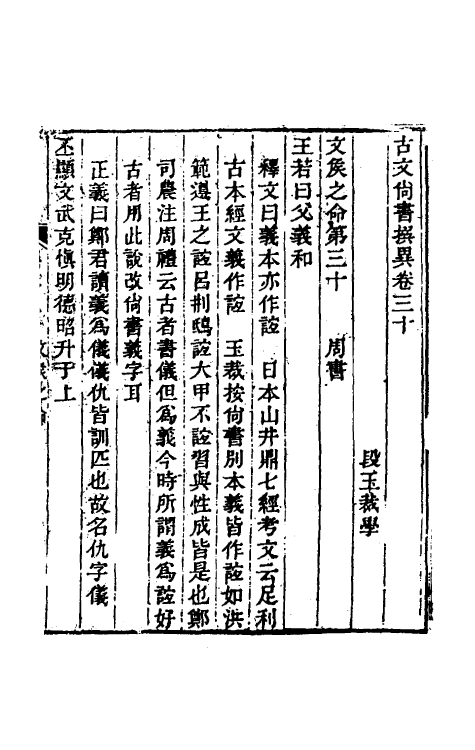 古文尙書撰異卷三十
段玉裁學
文矦之命第三十　周書
王若曰父義和
釋文曰義本亦作誼　日本山井鼎七經考文云足利
古本經文義作誼　玉裁按尙書別本義皆作誼如洪
範遵王之誼呂刑鴟誼大甲不誼習與性成皆是也鄭
司農注周禮云古者書儀但爲義今時所謂義爲誼好
古者用此說改尙書義字耳
正義曰鄭君讀義爲儀儀仇皆訓匹也故名仇字儀
丕顯文武克愼明德昭升于上